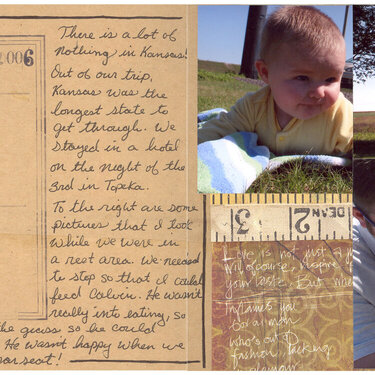 006
There is a lot of
nothing in Kansas!
Out of our trip,
Kansas was the
longest state to
get through. We
stayed in a hotel
on the night of the
3rd in Topeka.
To the right are some
pictures that I took
while we were in
a rest area. We needed
to stop so that I could
feed Calvin. He wasn't
really into eating, so
the grass so he could
He wasn't happy when we
car seat!
3 2 DEAN
Love is not just a
will of course, inspire
your taste. But
who's out
fashion,